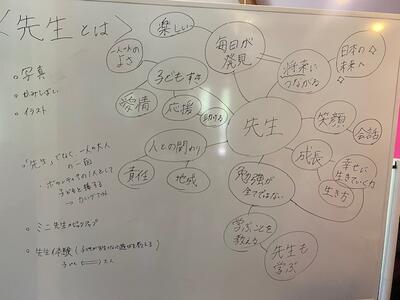 <先生とは>
○ 写真
○ かみしばい
○ イラスト
○ 「先生」でなく、一人の大人
の一面
・ボランティアの1人として
子どもと接する
○ ミニ先生
○ 先生体験
楽しい
一人一人の
よさ
子どもすき
愛情
応援
助ける
毎日が
発見
将来に
つながる
日本の
未来へ
先生
笑顔
会話
成長
幸せに
生きていく力
生き方
人との関わり
責任
地域
勉強が
全てではない
学ぶことを
教える
先生も
学ぶ